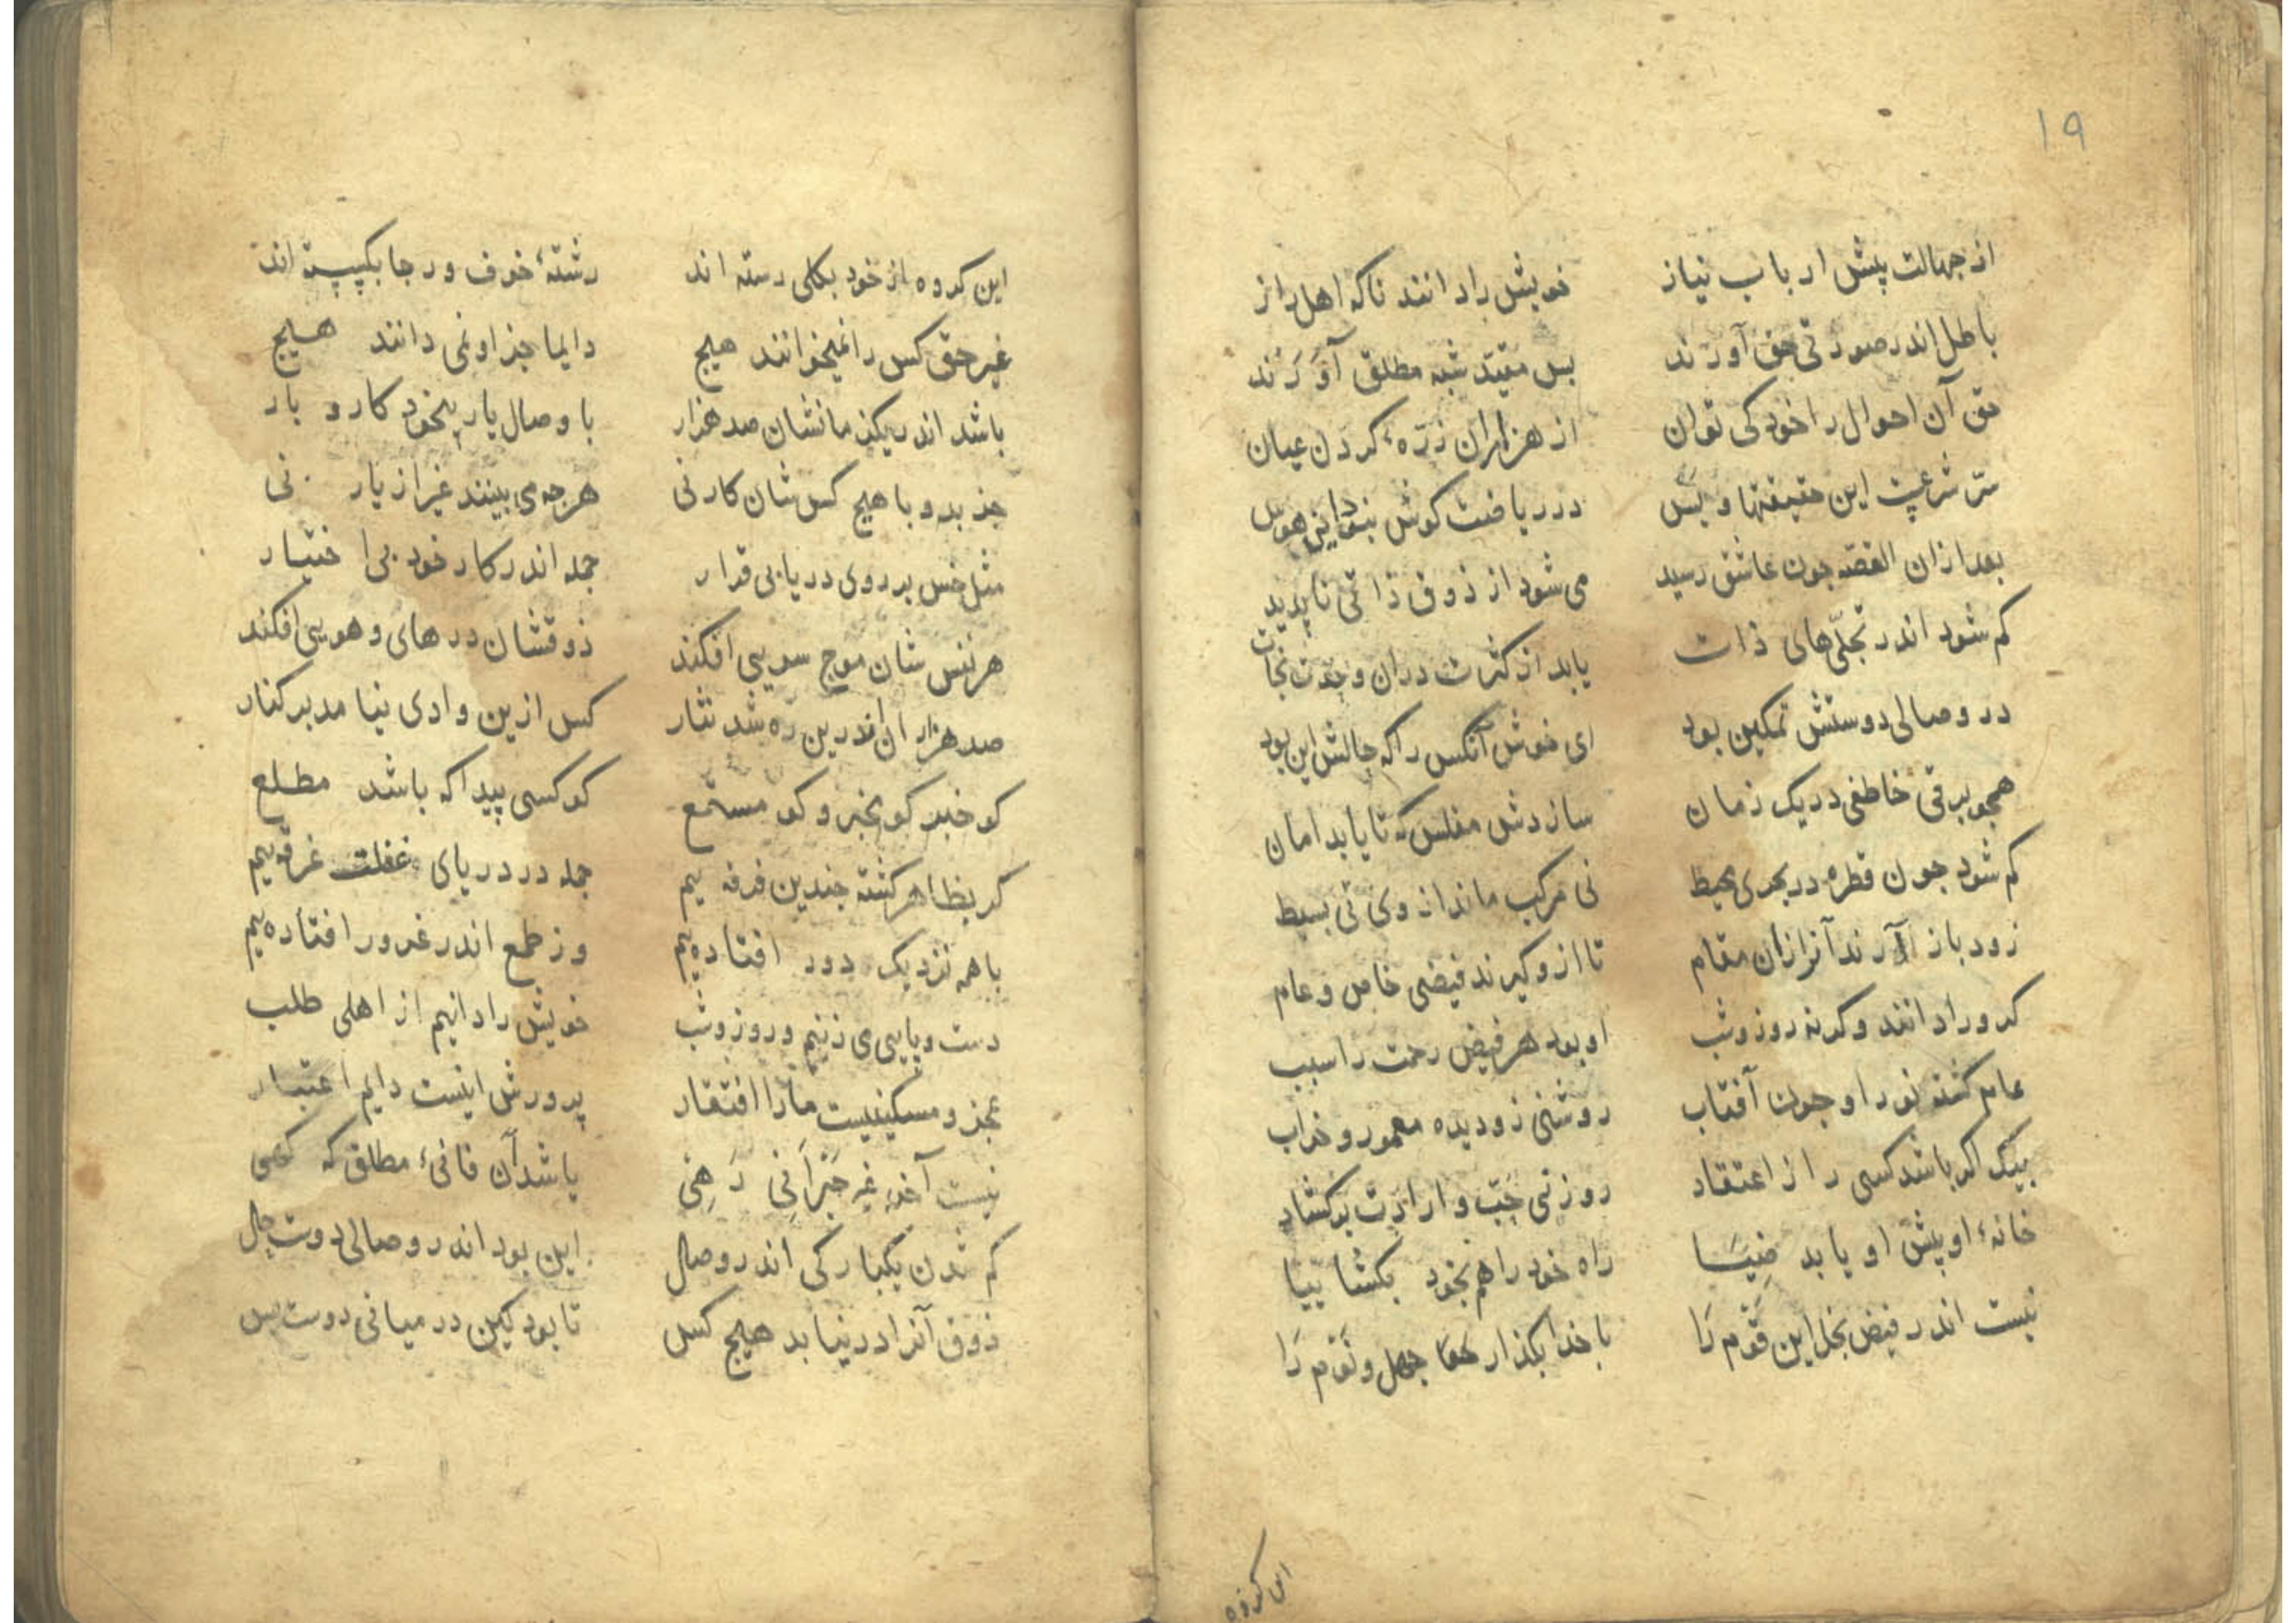 ۱۹
از جهالت پیش ارباب نیاز خویش را دانند ناکه اهل راز
باطل اندر صورتی حق آورند بس مقیّد شبه مطلق آوَرَند
حق آن احوال را خود کی توان از هزاران ذرّهٔ کردن عیان
سرّ شرعیت این حقیقتها و بَس در ریاضت کوش بنود این هوس
بعد ازان القصّه جون عاشق رسید می شود از ذوق ذاتی ناپدید
کم شود اندر تجلّی‌های ذات یابد از کثرت دران وحدت نجات
در وصالی دوستش تمکین بود ای خوش آنکس را که حالش این بود
همجو برقی خاطفی در یک زمان سازدش مفلس که تا یابد امان
کم شود جون قطره در بحری محیط نی مرکب ماند از وی نی بسیط
زود باز آرند آنرا زان مقام تا ازو کیرند فیضی خاص و عام
کر ورا دانند و کرنه روز و شب او بود هر فیض رحمت را سبب
عالم کشته نور او جون آفتاب روشنی زو دیده معمور و خراب
بیک اکر باشد کسی را از اعتقاد روزنی حبّ و ارادت برکشاد
خانهٔ او پیش او یابد ضِیَا راه خود را هم بخود بکشا بیا
نیست اندر فیض بخل این قَوْم رَا با خدا بکذار جهل و نَوْم رَا
این کروه
این کروه از خود بکلی رسته اند رشتهٔ خوف و رجا بکسسته اند
غیر حق کس را نمیخوانند هیج دایما جز او نمی دانند هیج
باشد اندر یکزمانشان صد هزار با وصال یار بیخود کار و بار
جذبه و با هیج کس شان کار نی هرجه می بینند غیر از یار نی
مثل خس بر روی دریا بی قرار جمله اندر کار خود بی اختیار
هر نفس شان موج سویی افکند ذوقشان در های و هویی افکند
صد هزاران اندرین ره شد نثار کس ازین وادی نیامد بر کنار
کو خبر کو مخبر و کو مستمع کو کسی پیدا که باشد مطلع
کر بظاهر کشته جندین فرقه ییم جمله در دریای غفلت غرقه ییم
با همه نزدیک دور افتاده ییم وز طمع اندر غرور افتاده ییم
دست و پایی می زنیم و روز و شب خویش را دانیم از اهلی طلب
عجز و مسکینیست مارا افتقار پرورش اینست دایم اعتبار
نیست آخر غیر حَیْرَانِی رَهِی باشد آن فانیٔ مطلق که کهی
کم شدن یکبارکی اندر وصال این بود اندر وصالی دوست حال
ذوق آنرا در نیابد هیج کس تا بود یکین در میانی دوست بس